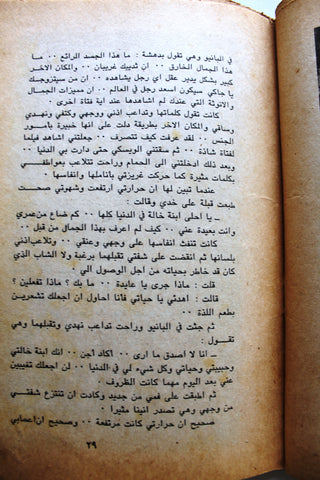 في البانيو وهي تقول بدهشة : ما هذا الجسد الرائع ٠٠ ما
هذا الجمال الخارق ٠٠ ان ثدييك غريبان ٠٠ والمكان الاخر
كبير بشكل يدير عقل اي رجل يشاهده ٠٠ ان من سيتزوجك
يا جاكي سيكون اسعد رجل في العالم ٠٠ ان مميزات الجمال
والانوثة التي عندك لم اشاهدها عند اية فتاة اخرى ٠
كانت تقول كلماتها وتداعب أذني ووجهي وكتفي ونهدي
وساقي والمكان الاخر بطريقة دلت على أنها خبيرة بأمور
الجنس ٠٠ لقد عرفت كيف تتصرف ٠٠ جعلتني أشاهد فيلما
لفتاة شاذة ٠٠ وسقتني الويسكي حتى دارت بي الدنيا ٠٠
وبعد ذلك أدخلتني الى الحمام وراحت تتلاعب بعواطفي
بكلمات مثيرة كما حركت غريزتي بأناملها وأنفاسها ٠
عندما تبين لها ان حرارتي ارتفعت وشهوتي صحت
طبعت قبلة على خدي وقالت :
ـ يا احلى ابنة خالة في الدنيا كلها ٠٠ كم ضاع من عمري
وانت بعيدة عني ٠٠ كيف لم اعرف بهذا الجمال من قبل ٠٠
كانت تنفث أنفاسها على وجهي وعنقي ٠٠ وتلاعب أذني
بلسانها ثم انقضت على شفتي تقبلهما برغبة ولا الشاب الذي
كان قد خاطر بحياته من اجل الوصول الي ٠
قلت : ماذا جرى يا عايدة ٠٠ ما بك ؟ ماذا تفعلين ؟
قالت : اهدئي يا حياتي فأنا احاول ان اجعلك تشعرين
بطعم اللذة ٠٠
ثم جثت في البانيو وراحت تداعب نهدي وتقبلهما وهي
تقول :
ـ انا لا اصدق ما ارى ٠٠ اكاد أجن ٠٠ انك ابنة خالتي
وحبيبتي وحياتي وكل شيء لي في الدنيا ٠٠ لن اجعلك تغيبين
عني بعد اليوم مهما كانت الظروف ٠
ثم اطبقت على فمي من جديد وكادت ان تنتزع شفتي
من وجهي وهي تصدر انينا مثيرا ٠
صحيح ان حرارتي كانت مرتفعة ٠٠ وصحيح ان اعصابي
٢٩